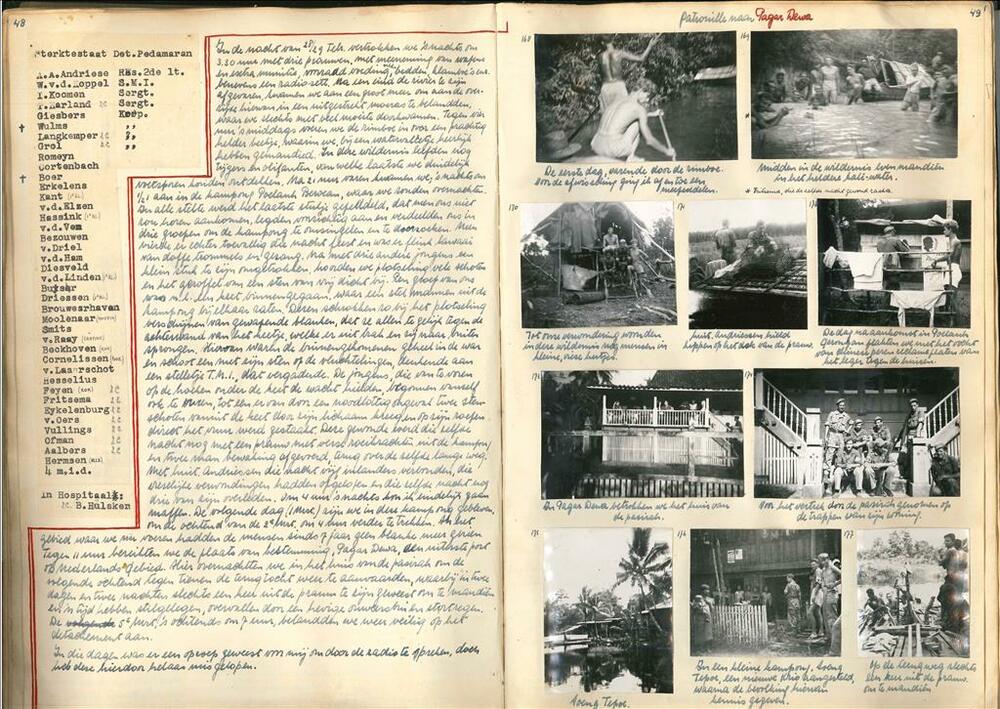 48
Sterktestaat Det.Pedamaran
A.A.Andriese Res.2de lt.
W.v.d.Koppel S.M.I.
I.Koomen Sergt.
T.Harland Sergt.
Giesbers Korp.
Wulms ,,
Langkemper ,,
Grol ,,
Romeyn
Cortenbach
Boer
Erkelens
Kant
v.d.Elzen
Hassink
v.d.Vem
Bezouwen
v.Driel
v.d.Ham
Diesveld
v.d.Linden
Driessen
Brouwershaven
Moolenaar
Smits
v.Raay
Beckhoven
Cornelissen
v.Laarschot
Hesselius
Feyen
Fritsema
Eykelenburg
v.Oers
Vullings
Ofman
Aalbers
Hermsen
4 m.i.d.
In Hospitaal:
B.Hulsken
In de nacht van 28/29 Feb. vertrokken we 's nachts om
3.30 uur met drie prauwen, met meeneming van wapens
en extra munitie, voorraad, voeding, bedden, klamboe's enz.
benevens een radioset. Na een eind de rivier te zijn
afgevaren, kwamen we aan een groot meer om aan de over-
zijde hiervan in een uitgestrekt moeras te belanden,
waar we slechts met veel moeite doorkwamen. Tegen vier
uur 's middags voeren we de rimboe in over een prachtig
helder beekje, waarin we, bij een watervalletje heerlijk
hebben gemandied. In deze wildernis leefden nog
tijgers en olifanten, van welke laatste we duidelijk
voetsporen konden ontdekken. Na 21 uur varen kwamen we, 's nachts om
1/2 1 aan in de kampong Poelant Beroean, waar we zouden overnachten.
In alle stilte werd het laatste stukje gepeddeld, dat men ons niet
zou horen aankomen, legden voorzichtig aan en verdeelden ons in
drie groepen om de kampong te omsingelen en te doorzoeken. Men
vierde er echter toevallig die nacht feest en was er flink lawaai
van doffe trommels en gezang. Na met drie andere jongens een
klein stuk te zijn omgetrokken, hoorden we plotseling vele schoten
en het geroffel van een sten van vrij dicht bij. Een groep van ons
was n.l. een keet binnengegaan, waar een stel mannen uit de
kampong bij elkaar zaten. Dezen schrokken zo bij het plotseling
verschijnen van gewapende blanken, dat ze allen te gelijk tegen de
achterwand van het keetje, welke er uit brak en zij naar buiten
sprongen. Hiervan waren de binnengekomenen geheel in de war
en schoot een met zijn sten op de vluchtelingen, denkende aan
een stelletje T.N.I., dat vergaderde. De jongens, die van te voren
op de hoeken onder de keet de wacht hielden begonnen vanzelf
ook te vuren, tot een er van door een noodlottig toeval twee sten-
schoten vanuit de keet door zijn lichaam kreeg en op zijn roepen
direct het vuur werd gestaakt. Deze gewonde werd die zelfde
nacht nog met een prauw met verse roeikrachten uit de kampong
en twee man bewaking afgevoerd, terug over de zelfde lange weg.
Met luit. Andriesse die nacht vijf inlanders verbonden, die
vreselijke verwondingen hadden opgelopen en die zelfde nacht nog
drie van zijn overleden. Om 4 uur 's nachts kon ik eindelijk gaan
maffen. De volgende dag (1 Mrt.) zijn we in deze kampong gebleven,
om de ochtend van de 2e Mrt. om 4 uur verder te trekken. In het
gebied waar we nu voeren hadden de mensen sinds 7 jaar geen blanke meer gezien.
Tegen 11 uur bereikten we de plaats van bestemming, Pagar Dewa, een uiterste post
op Nederlands gebied. Hier overnachtten we in het huis van de pasirah om de
volgende ochtend tegen tienen de terugtocht weer te aanvaarden, waarbij in twee
dagen en twee nachten slechts een keer uit de prauw te zijn geweest om te mandiën
en 'n tijd hebben stilgelegen, overvallen door een hevige onweersbui en stortregen.
De 5e Mrt. 's ochtends om 7 uur, belandden we weer veilig op het
detachement aan.
In die dagen was er een oproep geweest voor mij om door de radio te spreken, doch
heb deze hierdoor helaas mis gelopen.
49
Patrouille naar Pagar Dewa
168
169
De eerste dag, varende door de rimboe.
Voor de afwisseling ging ik af en toe een
eind peddelen.
Midden in de wildernis even mandiën
in het heldere beek-water.
170
171
Tot onze verwondering woonden
in deze wildernis nog mensen in
kleine, vieze hutjes.
luit. Andriessen hield
kippen op het dek van de prauw.
De dag na aankomst in Poelant
Beroean plakten we met het vocht
van chinese peren reclameplaten van
het leger tegen de huizen.
174
In Pagar Dewa betrokken we het huis van
de pasirah.
Voor het vertrek door de pasirah genomen op
de trappen van zijn woning.
175
176
177
Soeng Tepoe.
In een kleine kampong, Soeng
Tepoe, een nieuwe Krio aangesteld,
waarna de bevolking hiervan
kennis gegeven.
Op de terugweg slechts
één keer uit de prauw
om te mandiën